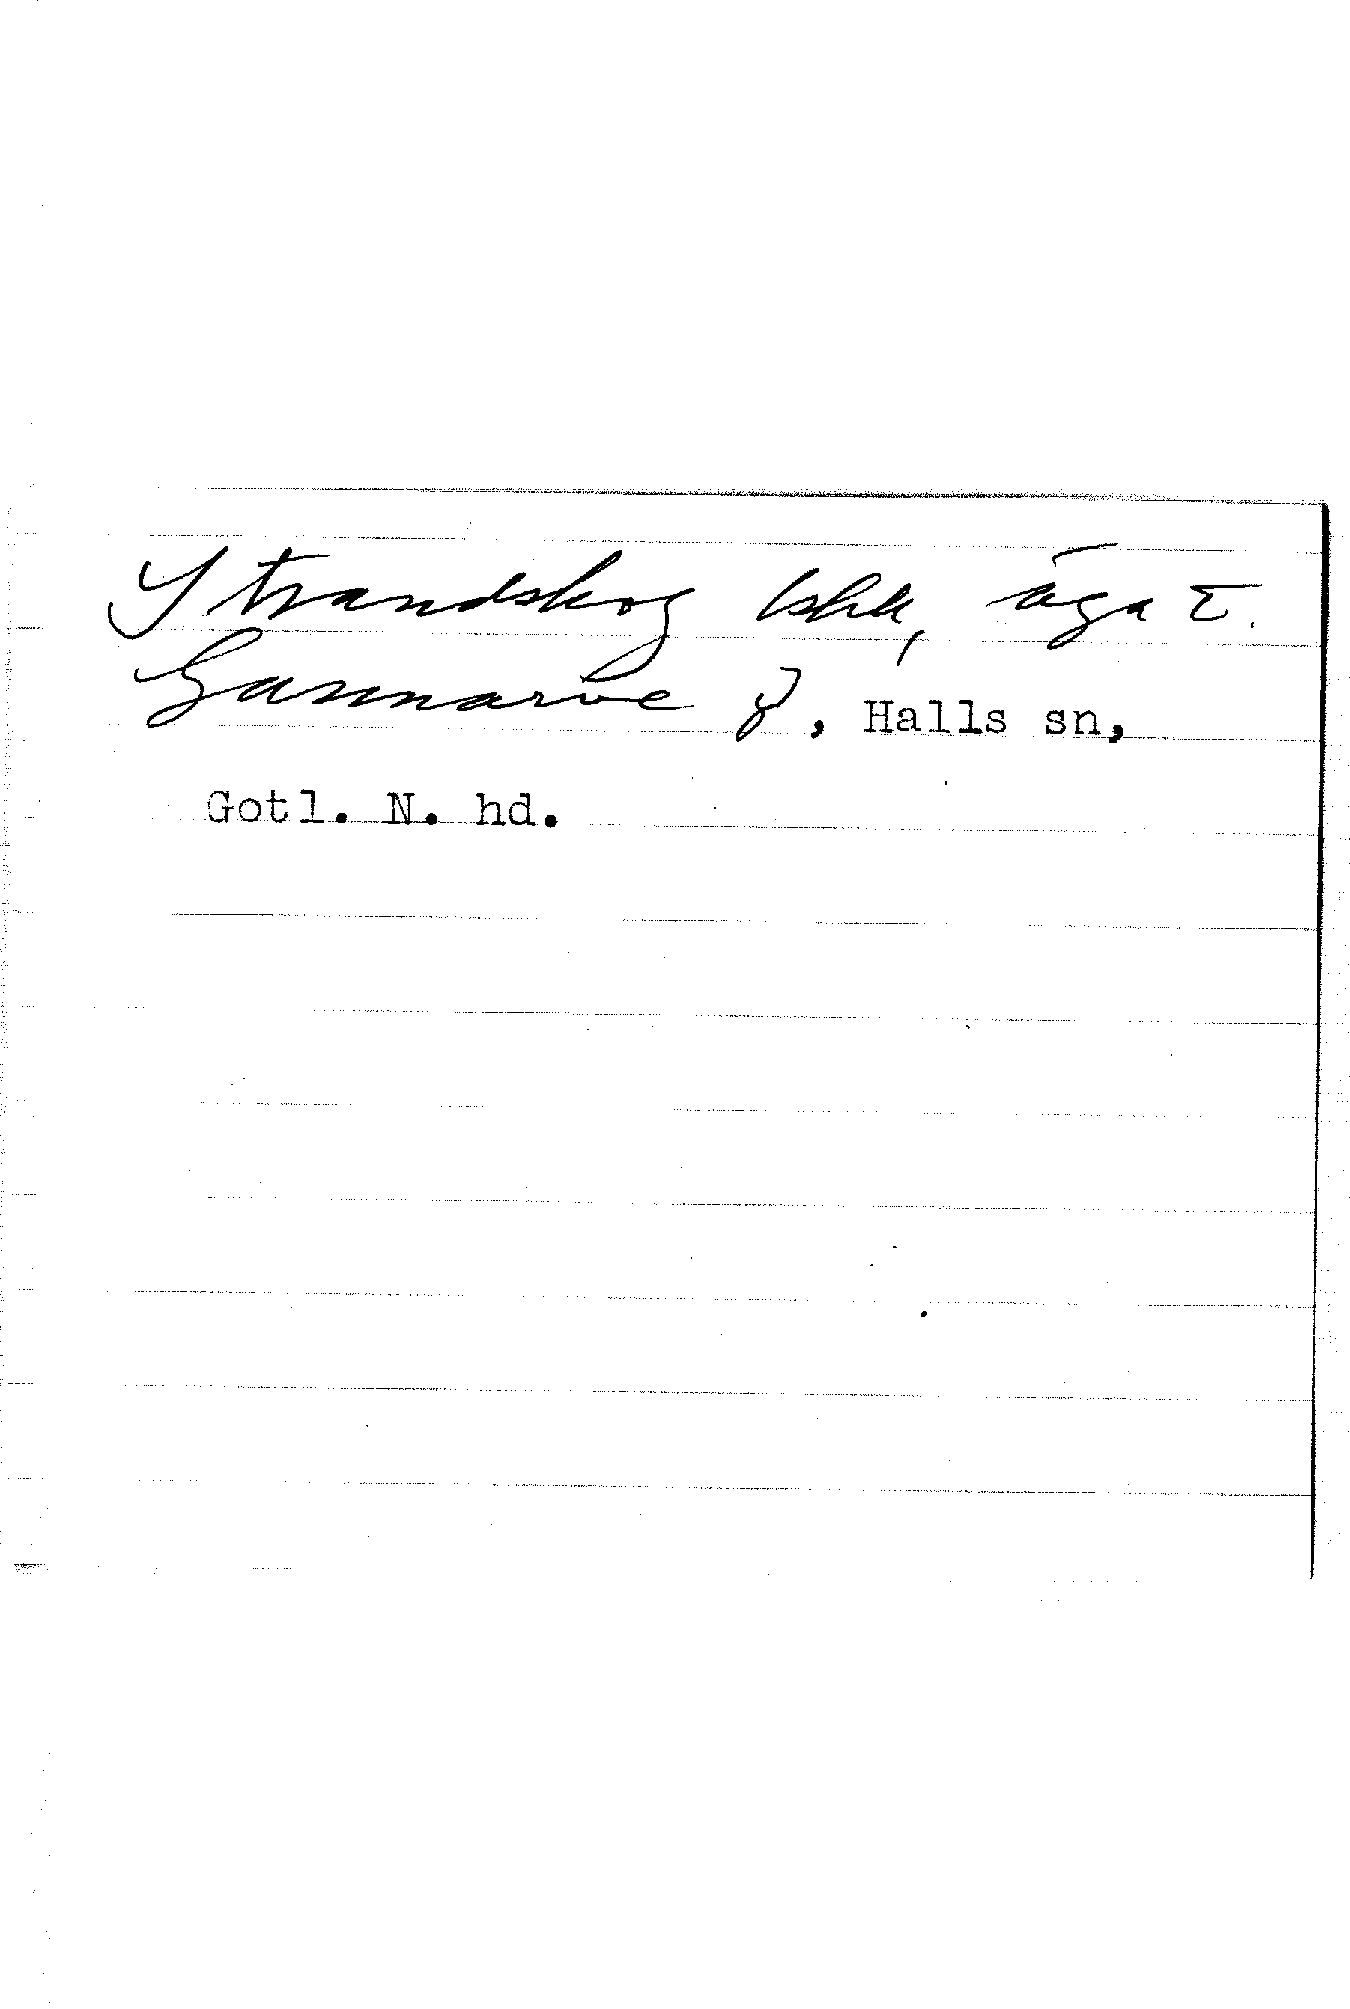 Strandskog bskr, äga t.
Gannarve J, Halls sn,
Gotl. N. hd.